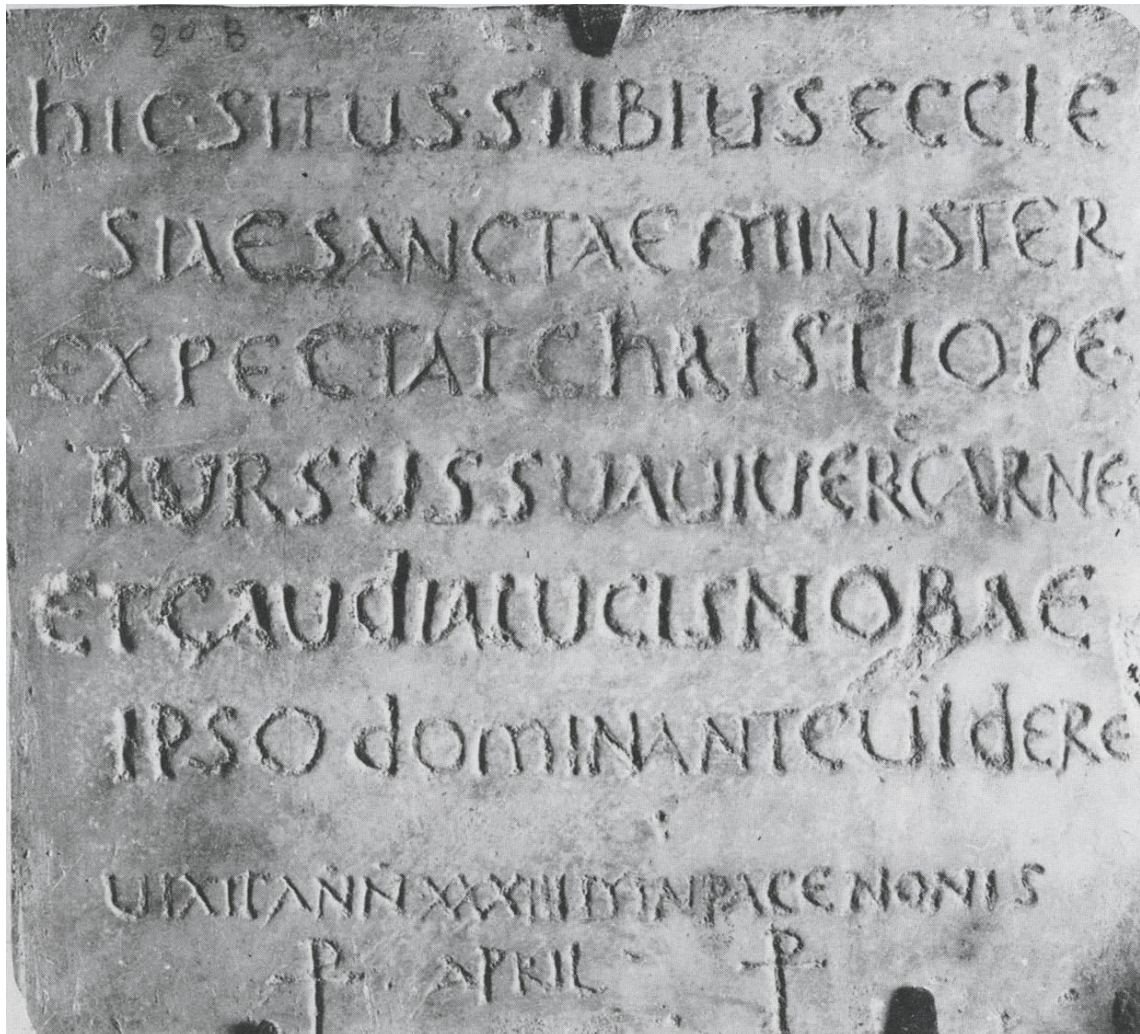 20 B
hIC·SITUS·SILBIUS ECCLE
SIAE SANCTAE MINISTER
EXPECTAT ChRISTI OPE
RURSUS SUA UIUERE CARNE
ET GAUdIA LUCIS NOBAE
IPSO dOMINANTE UIdERE
UIXIT ANN IN PACE NONIS
⳨ APRIL ⳨